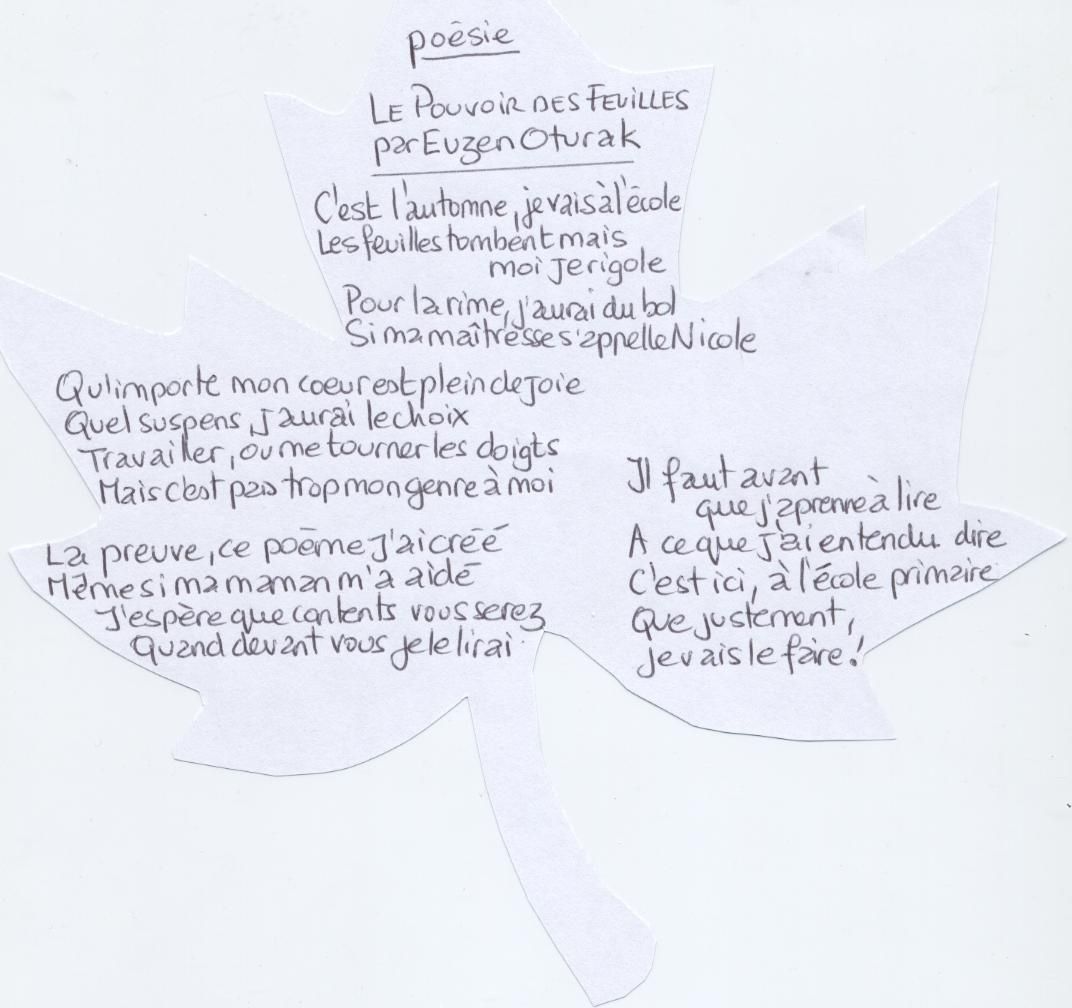 poésie
LE POUVOIR DES FEUILLES
par Euzen Oturak
C'est l'automne, je vais à l'école
Les feuilles tombent mais
moi je rigole
Pour la rime, j'aurai du bol
Si ma maîtresse s'appelle Nicole
Qu'importe mon coeur est plein de joie
Quel suspens, j'aurai le choix
Travailler, ou me tourner les doigts
Mais c'est pas trop mon genre à moi
La preuve, ce poème j'ai créé
Même si ma maman m'a aidé
J'espère que contents vous serez
Quand devant vous je le lirai.
Il faut avant
que j'aprenne à lire
A ce que j'ai entendu dire
C'est ici, à l'école primaire
Que justement,
je vais le faire!